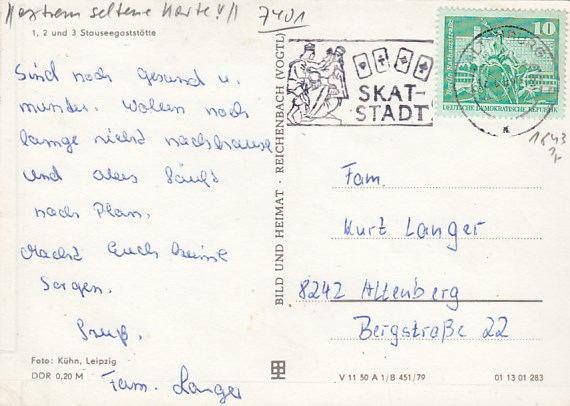 Extrem seltene Karte!!!
7401
1, 2 und 3 Stauseegaststätte
Sind noch gesund u.
munter. Wollen noch
lange nicht nachhause
und alles läuft
nach Plan.
Macht Euch keine
Sorgen.
Gruß.
Fam. Langer
Foto: Kühn, Leipzig
DDR 0,20 M
BILD UND HEIMAT · REICHENBACH (VOGTL)
SKAT-
STADT
10
DEUTSCHE DEMOKRATISCHE REPUBLIK
1843
Fam.
Kurt Langer
8242 Altenberg
Bergstraße 22
V 11 50 A 1/B 451/79
01 13 01 283